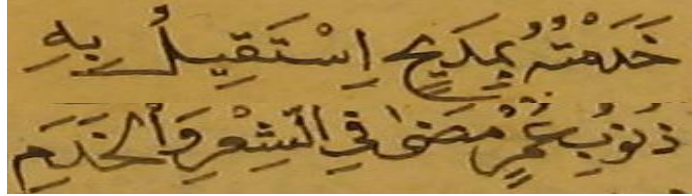 خَدَمْتُهُ بِمَدِيحٍ اِسْتَقِيلُ بِهِ
ذُنُوبَ عُمْرٍ مَضَىٰ فِي الشِّعْرِ وَالْخَدَمِ